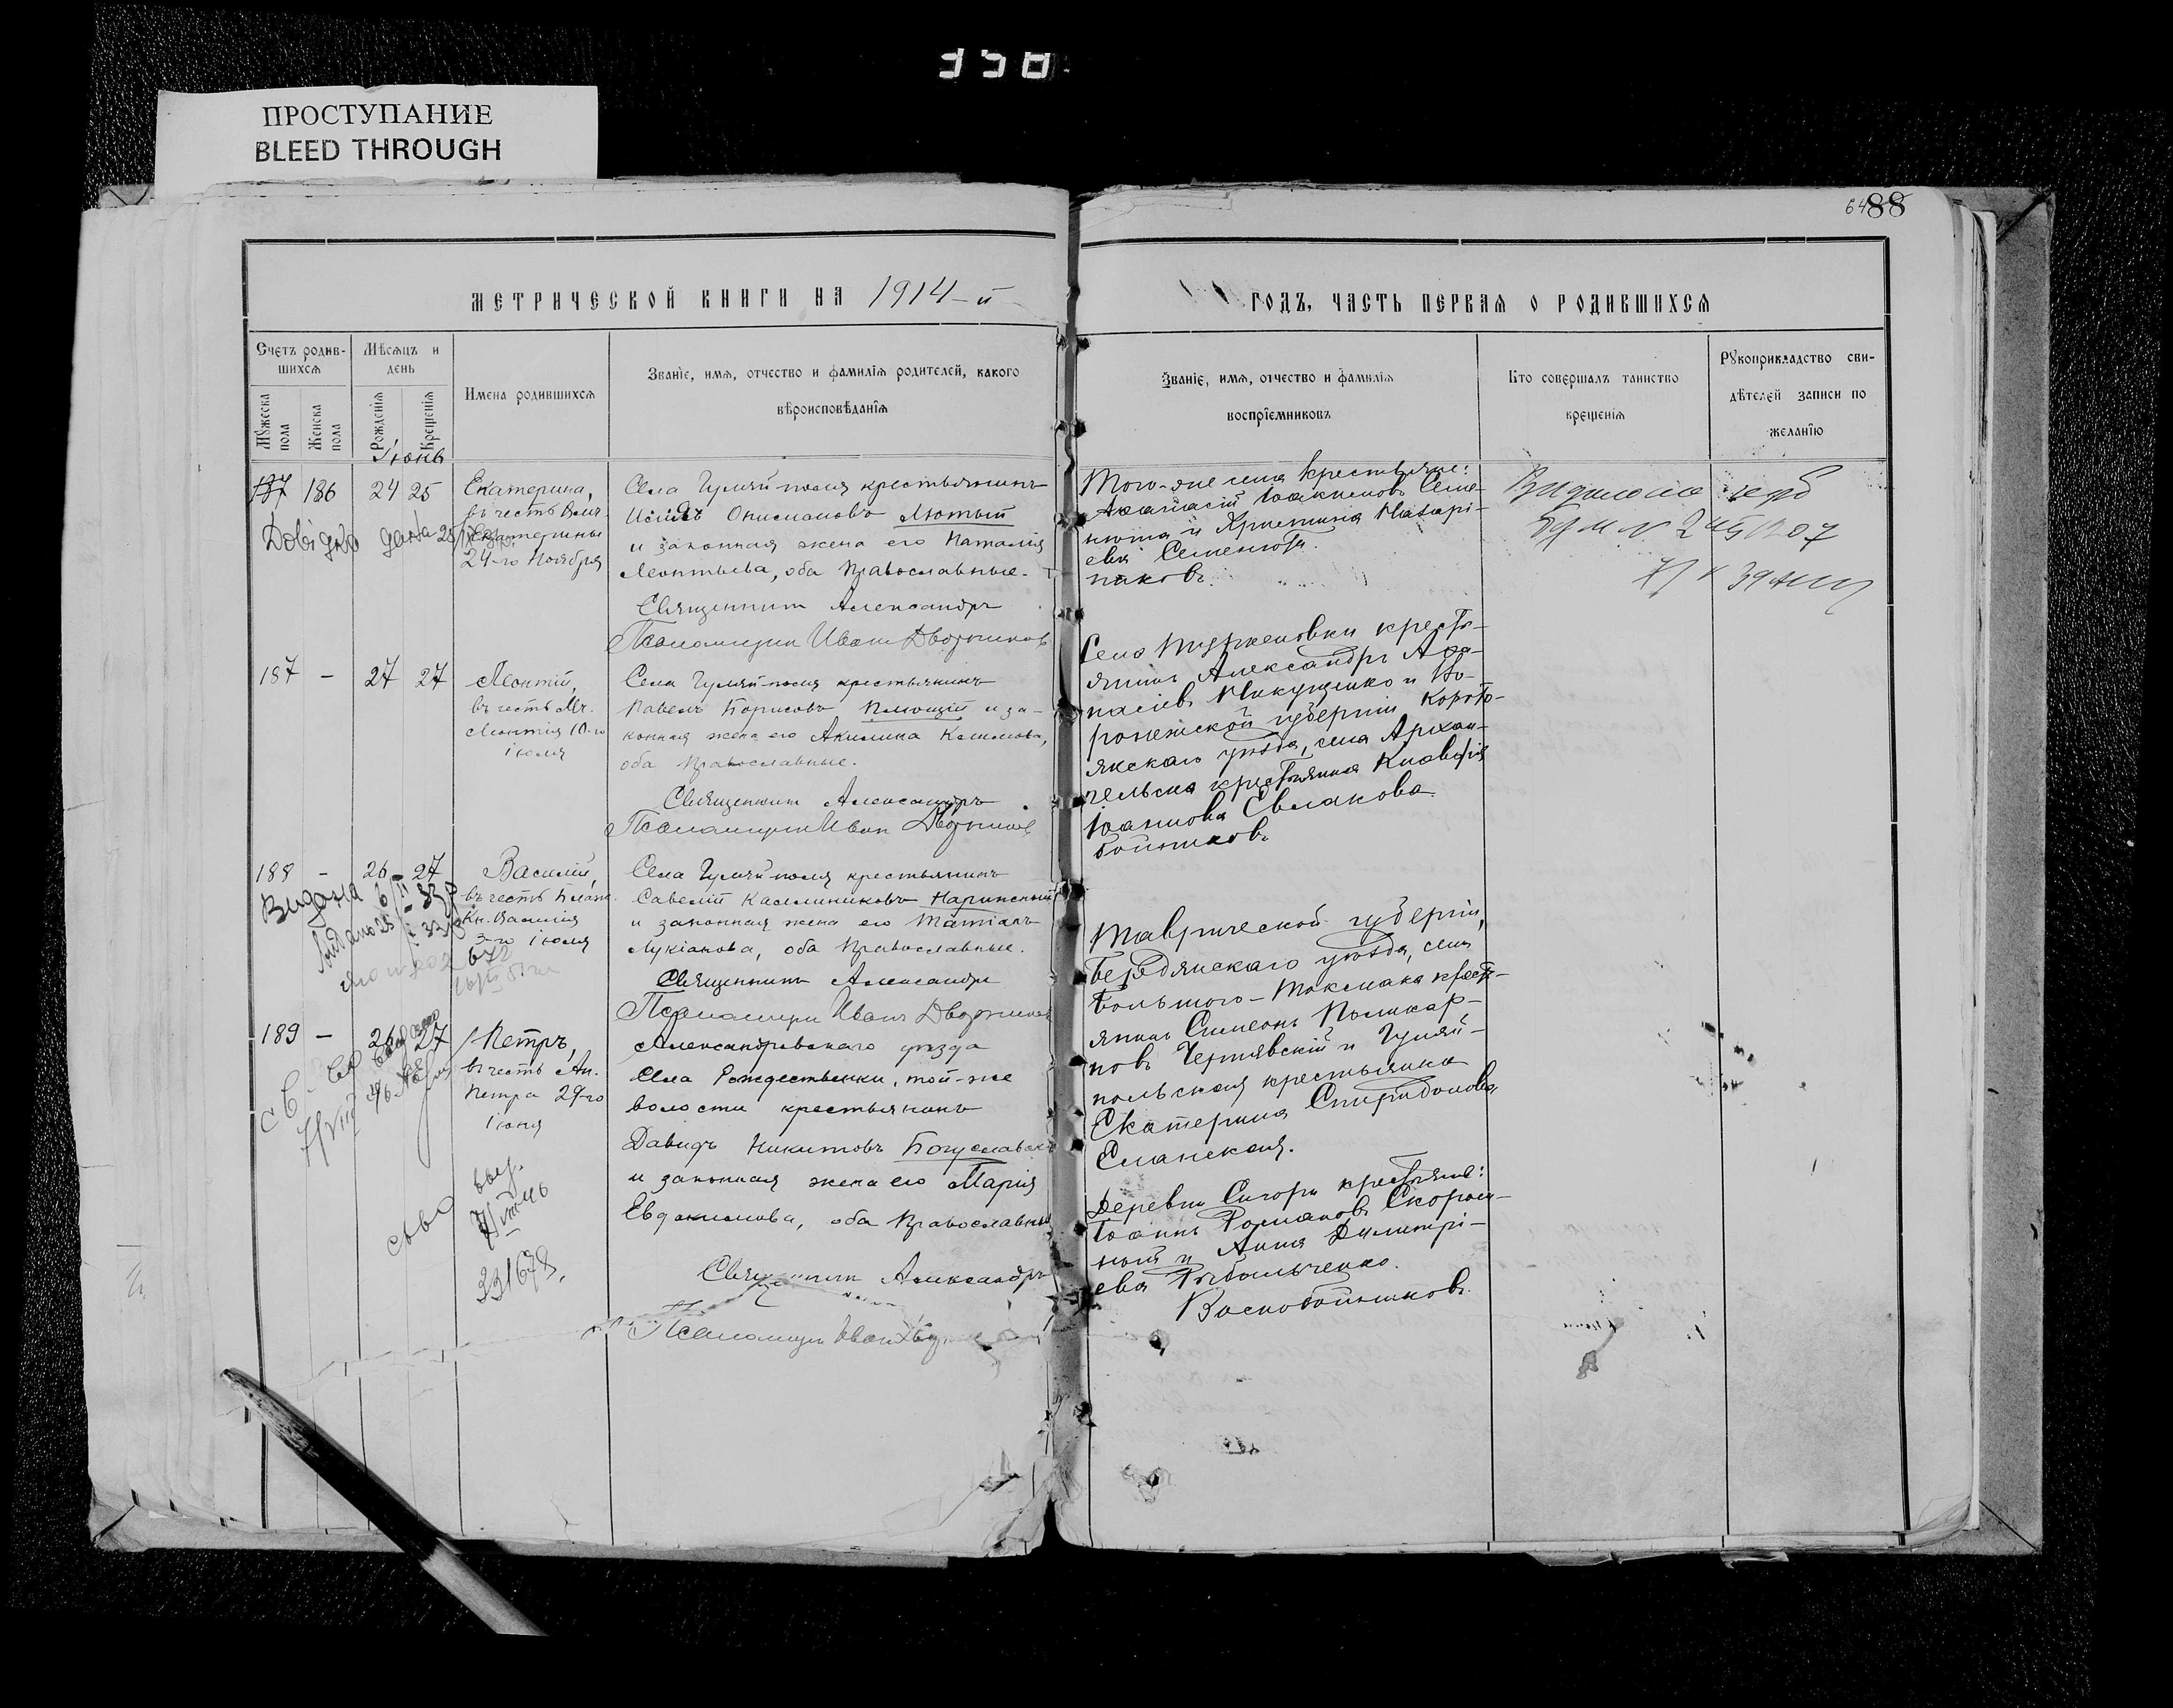 358
ПРОСТУПАНИЕ
BLEED THROUGH
88
МЕТРИЧЕСКОЙ КНИГИ НА 1914-й
ГОДЪ, ЧАСТЬ ПЕРВАЯ О РОДИВШИХСЯ
Счетъ родив-
шихся
Мѣсяцъ и
день
Мужеска
пола
Женска
пола
Рожденія
Крещенія
Имена родившихся
Званіе, имя, отчество и фамилія родителей, какого
вѣроисповѣданія
Званіе, имя, отчество и фамилія
воспріемниковъ
Кто совершалъ таинство
крещенія
Рукоприкладство сви-
дѣтелей записи по
желанію
Іюнь
137 186 24 25
Екатерина,
въ честь Велм.
Екатерины
24-го Ноября
Села Гуляй-поля крестьянинъ
Онисимовъ Лютый
и законная жена его Наталія
Леонтьева, оба православные.
Священникъ Александръ
Псаломщикъ Иванъ Дворников
Того-же села крестьяне:
Афанасій Іоакимовъ Семе-
нюта и Христина Назарі-
ева Семенюта.
никовъ.
187 – 27 27
Леонтій,
въ честь Мч.
Леонтія 10-го
іюля
Села Гуляй-поля крестьянинъ
Павелъ Борисовъ Плющій и за-
конная жена его Акилина Климова,
оба православные.
Священникъ Александръ
Псаломщикъ Иван Дворников
Села Туркеновки кресть-
янинъ Александръ Афа-
насіевъ Микущенко и Во-
ронежской губерніи Корото-
якскаго уѣзда, села Архан-
гельска крестьянка Клавдія
Іоаннова Евлакова
бойниковъ
188 – 26 27
Василій,
въ честь Благ.
Кн. Василія
3-го іюля
Села Гуляй-поля крестьянинъ
Савелій Каллиниковъ Наринскій
и законная жена его Татіана
Лукіанова, оба православные.
Священникъ Александръ
Псаломщикъ Иванъ Дворников
Таврической губерніи,
Бердянскаго уѣзда, села
Большого-Токмака кресть-
янинъ Симеонъ Поликар-
повъ Чернявскій и Гуляй-
польская крестьянка
Екатерина Спиридонова
Еланская.
189 – 26 27
Петръ,
въ честь Ап.
Петра 29-го
іюня
Александровскаго уѣзда
села Рождественки, той-же
волости крестьянинъ
Давидъ Никитовъ Богуславскі
и законная жена его Марія
Евдокимова, оба православные
Священникъ Александръ
Псаломщикъ Иван
Деревни Сигоры крестьяне:
Іоаннъ Романовъ Скором-
ный и Анна Димитрі-
ева Рыбальченко.
Воскобойниковъ.